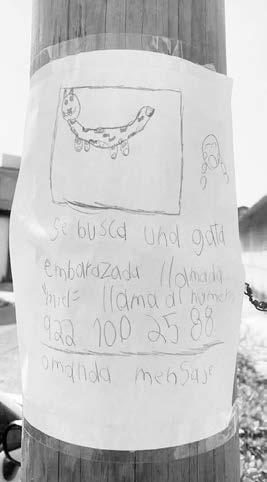 se busca una gata
embarazada llamada
"miel" llama al numero
922 100 25 88
omanda mensaje